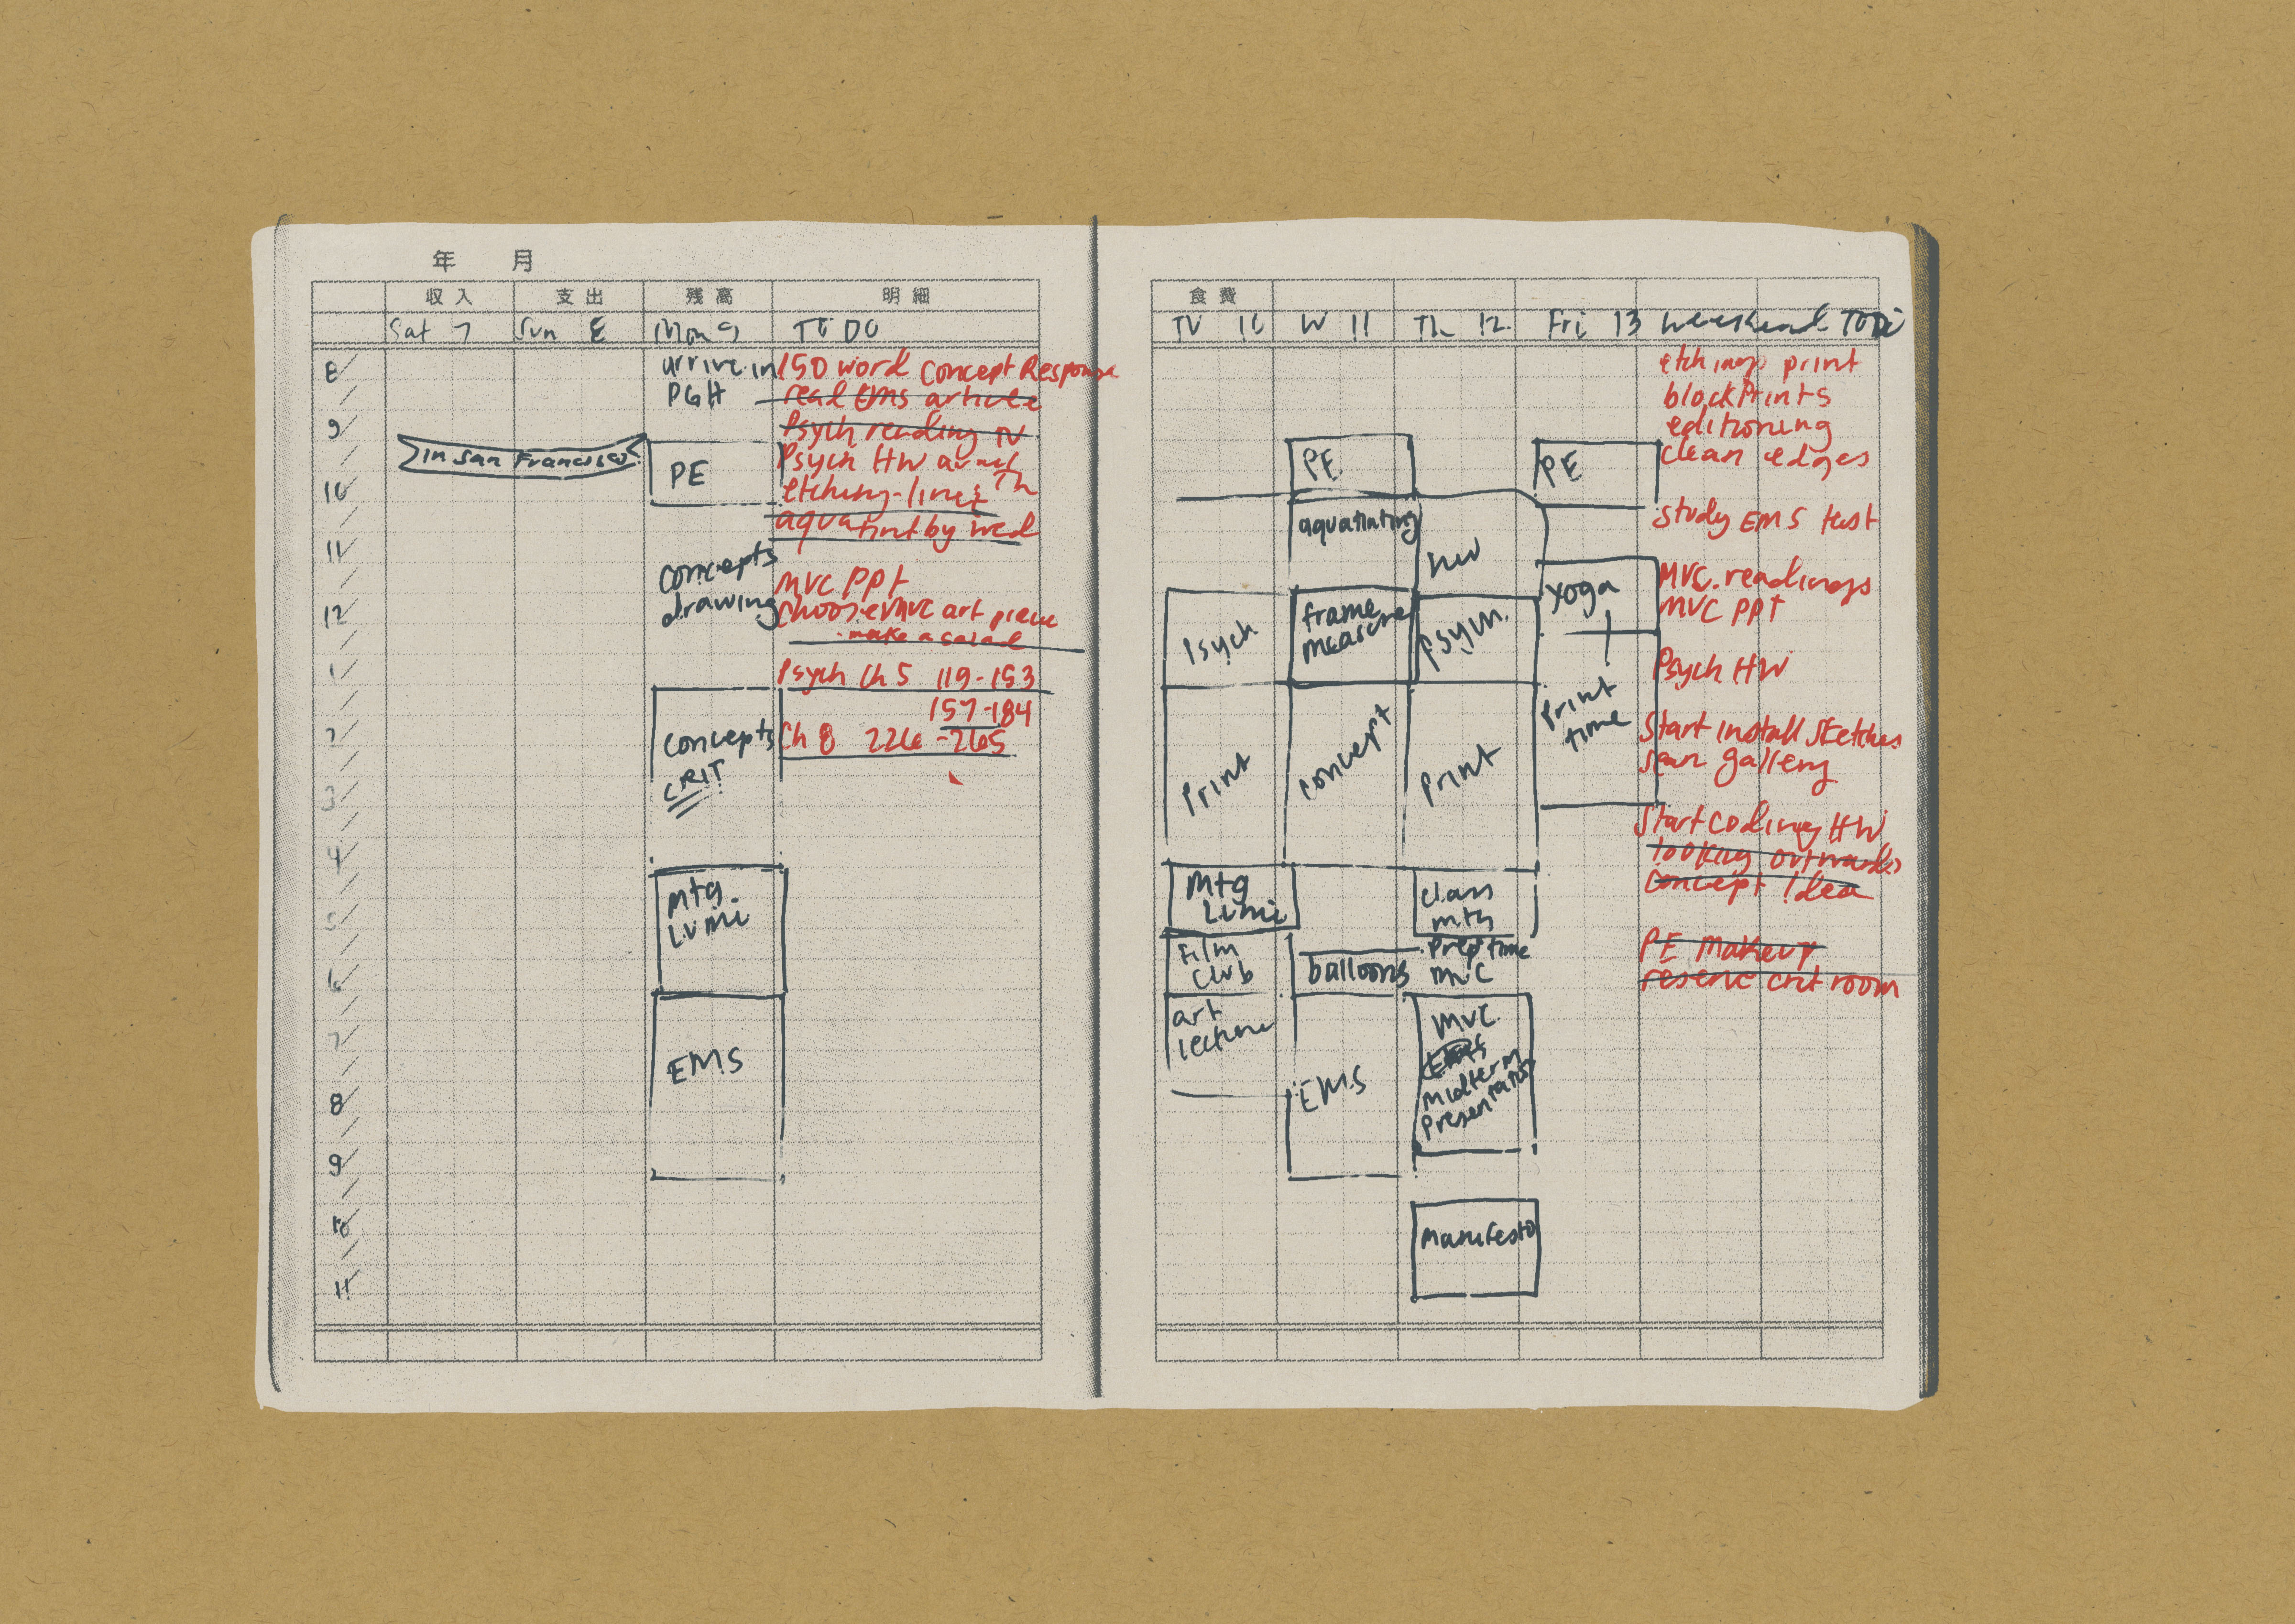 年 月
収入 支出 残高 明細
Sat 7 Sun 8 Mon 9 TO DO
8
9
10
11
12
1
2
3
4
5
6
7
8
9
10
11
in San Francisco
arrive in
PGH
PE
concepts
drawing
concepts
CRIT
Mtg.
Lumi
EMS
150 word Concept Response
read EMS article
Psych reading TU
Psych HW
etching-lines Th
aquatint by wed
MVC PPT
choose MVC art piece
make a salad
Psych Ch 5 119-153
157-184
Ch 8 226-265
食費
TU 10 W 11 Th 12 Fri 13 weekend TODO
Psych
Print
Mtg
Lumi
Film
Club
art
lecture
PE
aquatinting
frame
measure
concept
balloons
EMS
HW
Psych
Print
class
mtg
Prep time
MVC
MVC
midterm
presentation
manifesto
PE
yoga
Print
time
etching print
blockprints
editioning
clean edges
Study EMS test
MVC readings
MVC PPT
Psych HW
Start install Sketches
gallery
Start coding HW
looking outwards
concept idea
PE Makeup
reserve crit room